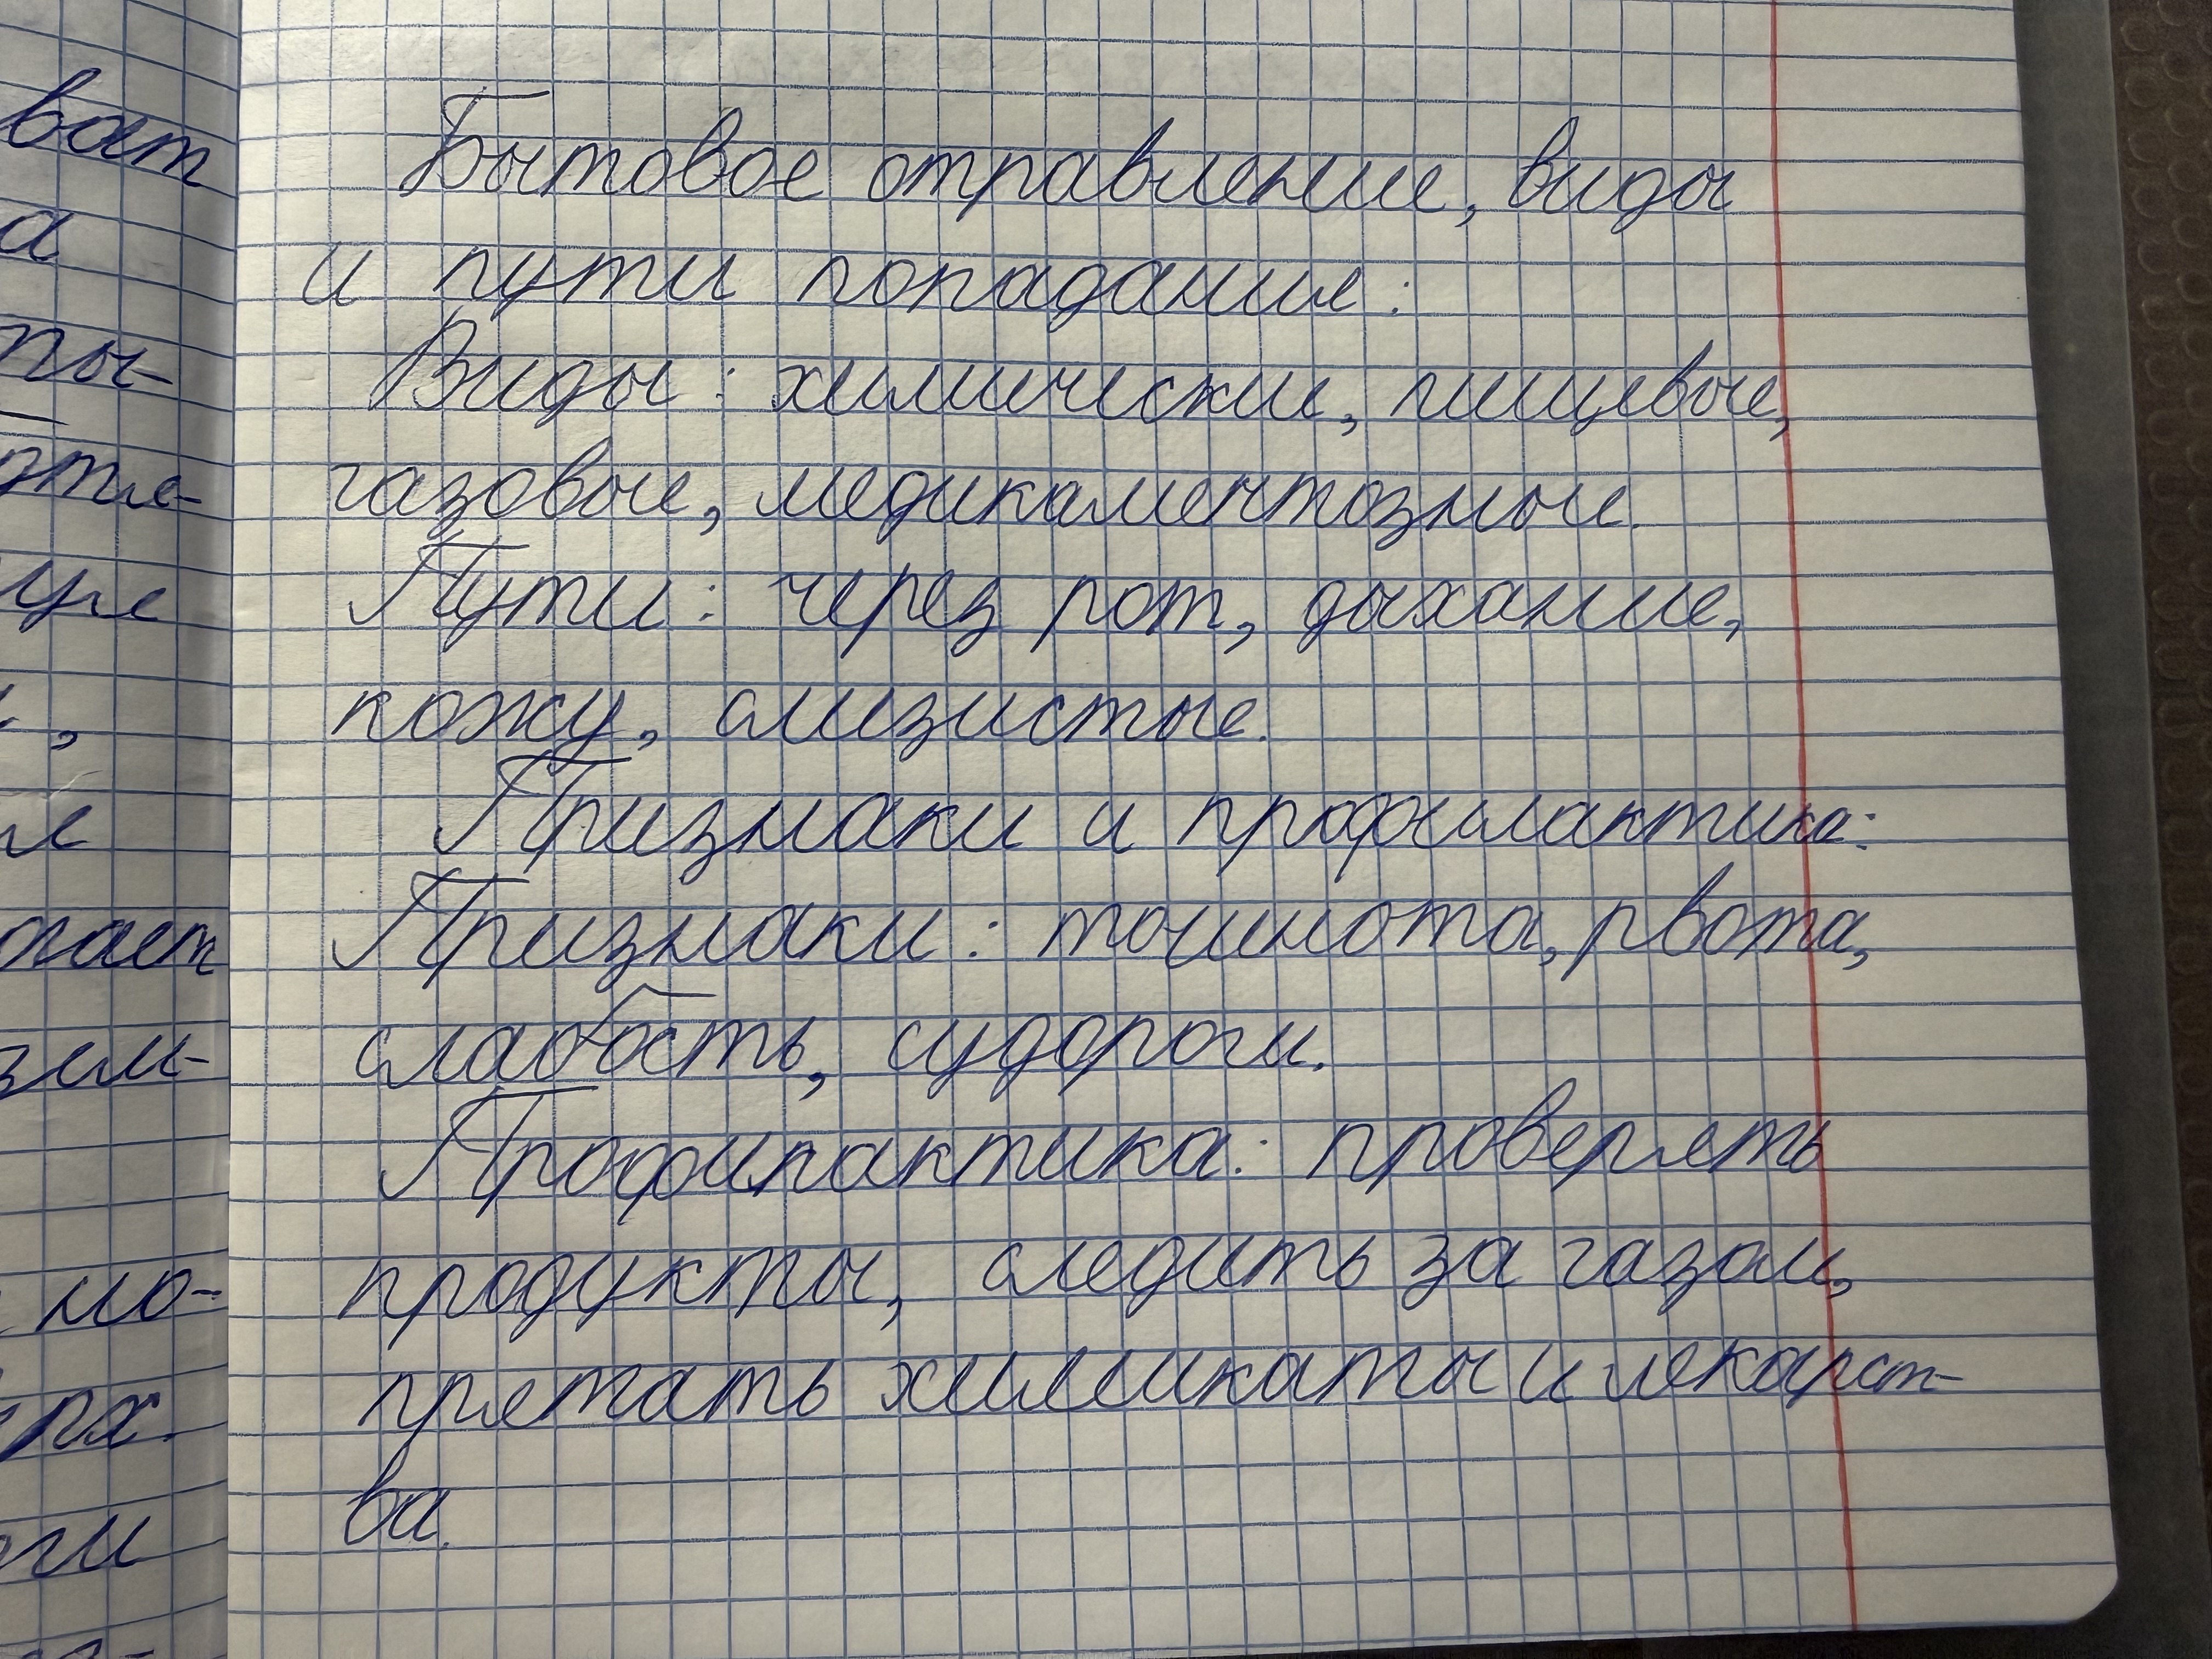 Бытовое отравление, виды
и пути попадания:
Виды: химически, пищевые,
газовые, медикаментозные.
Пути: через рот, дыхание,
кожу, слизистые.
Признаки и профилактика:
Признаки: тошнота, рвота,
слабость, судороги.
Профилактика: проверять
продукты, следить за газом,
прятать химикаты и лекарст-
ва.